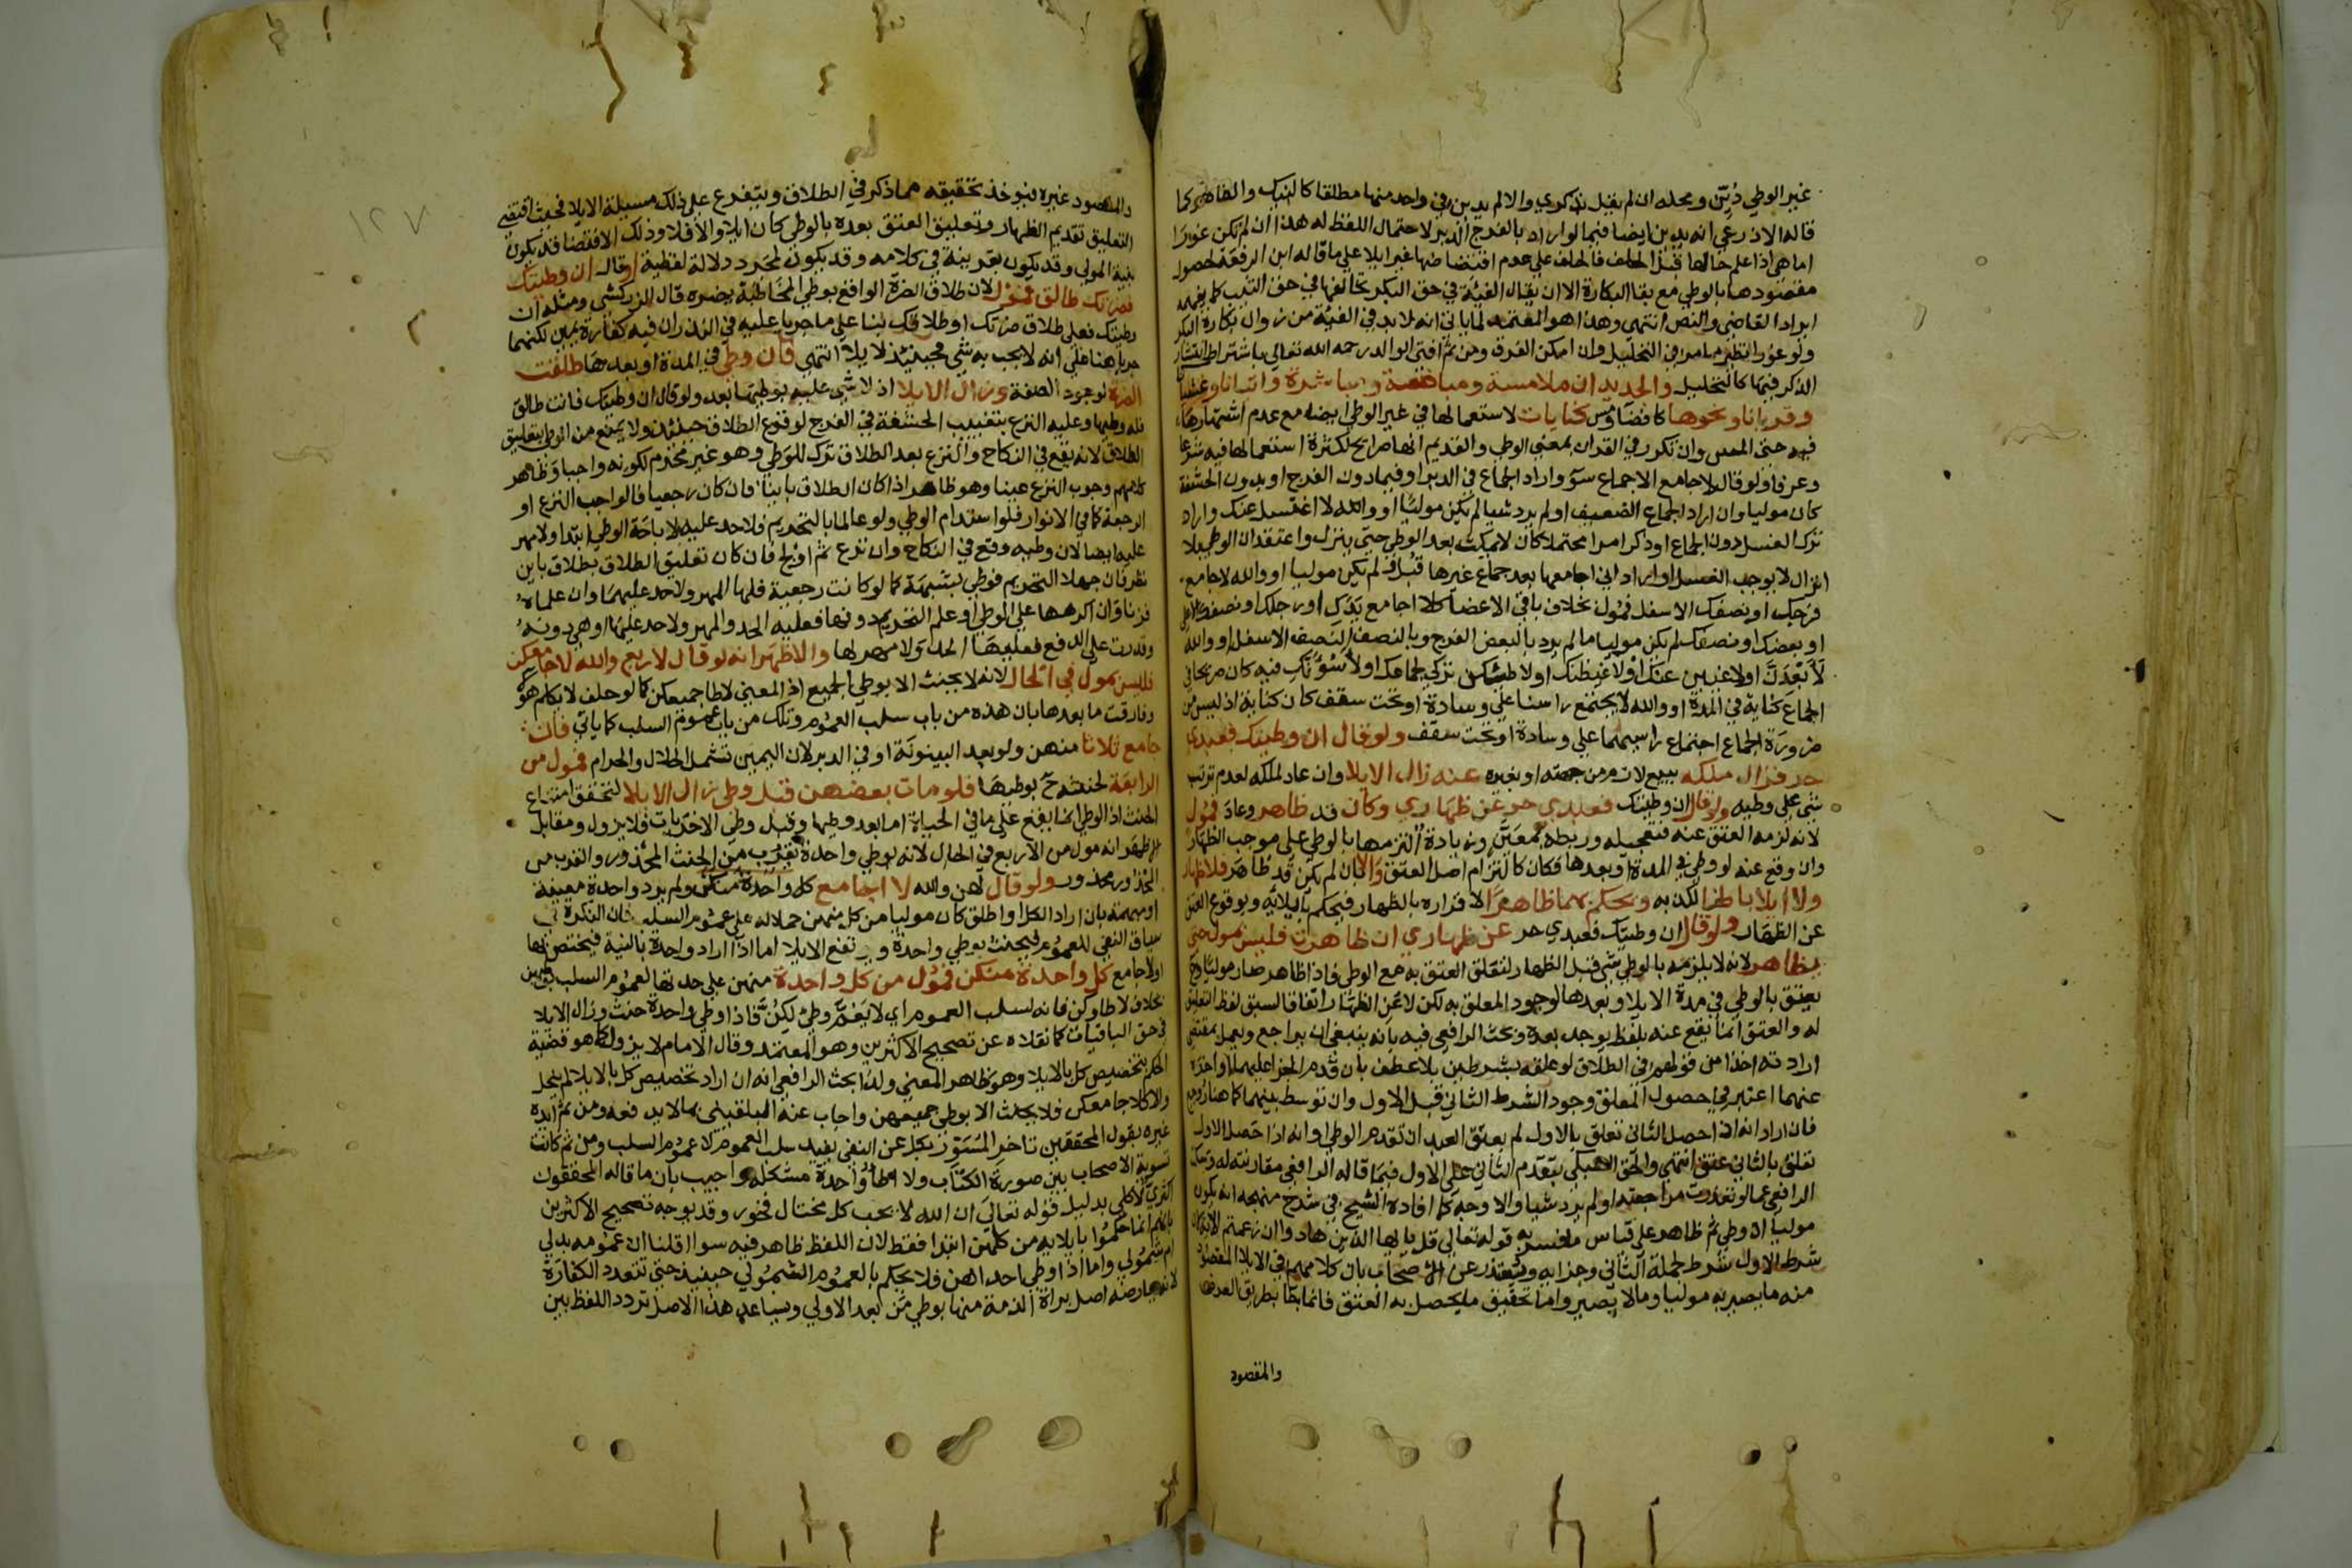 غير الوطي دُيّن ومحله ان لم يقل بذكري والا لم يدين في واحد منها مطلقا كالنيك والظاهر كما
قاله الاذرعي انه يدين ايضا فيما لو اراد بالفرج الدبر لاحتمال اللفظ له هذا ان لم تكن غوراء
اما هي اذا علم حالها قبل الحلف فالحلف علي عدم افتضاضها غير ايلا علي ما قاله ابن الرفعة لحصول
مقصودها بالوطي مع بقا البكارة الا ان يقال الفيئة في حق البكر تخالفها في حق الثيب كما يفهمه
ايراد القاضي والنص انتهي وهذا هو المعتمد لما ياتي انه لا بد في الفيئة من زوال بكارة البكر
ولو غورا نظير ما مر في التحليل وان امكن الفرق ومن ثم افتي الوالد رحمه الله تعالي باشتراط انتشار
الذكر فيها كالتحليل والجديد ان ملامسة ومباضعة ومباشرة واتيانا وغشيانا
وقربانا ونحوها كافضا ومس كنايات لاستعمالها في غير الوطي ايضا مع عدم اشتهارها
فيه حتي المس وان تكرر في القران بمعني الوطي والقديم انها صرايح لكثرة استعمالها فيه شرعا
وعرفا ولو قال لاجامع الاجماع سوٓ واراد الجماع في الدبر او فيما دون الفرج او بدون الحشفة
كان موليا وان اراد الجماع الضعيف او لم يرد شيا لم يكن موليا او والله لا اغتسل عنك واراد
ترك الغسل دون الجماع او ذكر امرا محتملا كان لا يمكث بعد الوطي حتي ينزل واعتقد ان الوطي بلا
انزال لا يوجب الغسل او اراد اني اجامعها بعد جماع غيرها قبل لم يكن موليا او والله لا جامع
فرجك او نصفك الاسفل فمول بخلاف باقي الاعضا كلا اجامع يدك او رجلك او نصفك الاعلي
او بعضك او نصفك لم يكن موليا ما لم يرد بالبعض الفرج وبالنصف النصف الاسفل او والله
لابعدن او لاغيبن عنك او لاغيظنك او لا طشكن تركي لجماعك او لاسؤنك فيه كان صريحا في
الجماع كناية في المدة او والله لا يجتمع راسنا علي وسادة او تحت سقف كان كناية اذ ليس من
ضرورة الجماع اجتماع راسيهما علي وسادة او تحت سقف ولو قال ان وطيتك فعبدي
حر فزال ملكه ببيع لازم من جهته او بغيره عنه زال الايلا وان عاد لملكه لعدم ترتب
شي علي وطيه ولو قال ان وطيتك فعبدي حر عن ظهاري وكان قد ظاهر وعاد فمول
لانه لزمه العتق عنه فتعجيله وربطه بمعين زيادة التزمها بالوطي علي موجب الظهار
وان وقع عنه لو وطي في المدة او بعدها فكان كالتزام اصل العتق والا بان لم يكن قد ظاهر فلا ظهار
ولا ايلا باطنا لكذبه ويحكم بهما ظاهرا لاقراره بالظهار فيحكم بايلائه وبوقوع العتق
عن الظهار ولو قال ان وطيتك فعبدي حر عن ظهاري ان ظاهرت فليس بمول حتي
يظاهر لانه لا يلزمه بالوطي شي قبل الظهار لتعلق العتق به مع الوطي فاذا ظاهر صار موليا وح
يعتق بالوطي في مدة الايلا وبعدها لوجود المعلق به لكن لا عن الظهار اتفاقا لسبق لفظ التعليق
له والعتق انما يقع عنه بلفظ يوجد بعده وبحث الرافعي فيه بانه ينبغي ان يراجع ويعمل بمقتضي
ارادته اخذا من قولهم في الطلاق لو علقه بشرطين بلا عطف بان قدم الجزا عليهما او اخره
عنهما اعتبر في حصول المعلق وجود الشرط الثاني قبل الاول وان توسط بينهما كما هنا روجع
فان اراد انه اذا حصل الثاني تعلق بالاول لم يعتق العبد ان تقدم الوطي او انه اذا حصل الاول
تعلق بالثاني عتق انتهي والحق السبكي بتقدم الثاني علي الاول فيما قاله الرافعي مقارنته له وسكت
الرافعي عما لو تعذرت مراجعته او لم يرد شيا والاوجه كما افاده الشيخ في شرح منهجه انه يكون
موليا ان وطي ثم ظاهر علي قياس ما فسر به قوله تعالي قل يا ايها الذين هادوا ان زعمتم الاية لان
شرط الاول شرط لجملة الثاني وجزايه ويعتذر عن الاصحاب بان كلامهم في الايلا المقصود
منه ما يصير به موليا وما لا يصير واما تحقيق ما يحصل به العتق فانما جا بطريق العرض
والمقصود
١٢٧
والمقصود غيره فيوخذ تحقيقه مما ذكر في الطلاق ويتفرع علي ذلك مسيلة الايلا فحيث اقتضي
التعليق تقديم الظهار وتعليق العتق بعده بالوطي كان ايلا والا فلا وذلك الاقتضا قد يكون
بنية المولي وقد يكون بقرينة في كلامه وقد يكون لمجرد دلالة لفظية او قال ان وطيتك
فضرتك طالق فمول لان طلاق الضرة الواقع بوطي المخاطبة يضره قال الزركشي ومثله ان
وطيتك فعلي طلاق ضرتك او طلاقك بنا علي ما جريا عليه في النذر ان فيه كفارة يمين لكنهما
جريا هنا علي انه لا يجب به شي فحينئذ لا يلا انتهي فان وطي في المدة او بعدها طلقت
الضرة لوجود الصفة وزال الايلا اذ لا شي عليه بوطيها بعد ولو قال ان وطيتك فانت طالق
فله وطيها وعليه النزع بتغييب الحشفة في الفرج لوقوع الطلاق حينئذ ولا يمنع من الوطي بتعليق
الطلاق لانه يقع في النكاح والنزع بعد الطلاق ترك للوطي وهو غير محرم لكونه واجبا وظاهر
كلامهم وجوب النزع عينا وهو ظاهر اذا كان الطلاق باينا فان كان رجعيا فالواجب النزع او
الرجعة كما في الانوار فلو استدام الوطي ولو عالما بالتحريم فلا حد عليه لاباحة الوطي ابتدا ولا مهر
عليه ايضا لان وطيه وقع في النكاح وان نزع ثم اولج فان كان تعليق الطلاق بطلاق باين
نظر فان جهلا التحريم فوطي بشبهة كما لو كانت رجعية فلها المهر ولا حد عليهما وان علماه
فزنا وان اكرهها علي الوطي او علم التحريم دونها فعليه الحد والمهر ولا حد عليها او هي دونه
وقدرت علي الدفع فعليها الحد ولا مهر لها والاظهر انه لو قال لاربع والله لا جامعكن
فليس بمول في الحال لانه لا يحنث الا بوطي الجميع اذ المعني لا طا جميعكن كما لو حلف لا يكلم هولا
وفارقت ما بعدها بان هذه من باب سلب العموم وتلك من باب عموم السلب كما ياتي فان
جامع ثلاثا منهن ولو بعد البينونة او في الدبر لان اليمين تشمل الحلال والحرام فمول من
الرابعة لحنثه ح بوطيها فلو مات بعضهن قبل وطي زال الايلا لتحقق امتناع
الحنث اذ الوطي انما يقع علي ما في الحياة اما بعد وطيها وقبل وطي الاخريات فلا يزول ومقابل
الاظهر انه مول من الاربع في الحال لانه بوطي واحدة يقرب من الحنث المحذور والقرب من
المحذور محذور ولو قال لهن والله لا اجامع كل واحدة منكن ولم يرد واحدة معينة
او مبهمة بان اراد الكل او اطلق كان موليا من كل منهن حملا له علي عموم السلب فان النكرة في
سياق النفي للعموم فيحنث بوطي واحدة ويرتفع الايلا اما اذا اراد واحدة بالنية فيختص بها
او لا جامع كل واحدة منكن فمول من كل واحدة منهن علي حدتها لعموم السلب بوطيهن
بخلاف لا طاوكن فانه لسلب العموم اي لا يعم وطي لكن فاذا وطي واحدة حنث وزال الايلا
في حق الباقيات كما نقلاه عن تصحيح الاكثرين وهو المعتمد وقال الامام لا يزول كما هو قضية
الحكم بتخصيص كل بالايلا وهو ظاهر المعني ولذا بحث الرافعي انه ان اراد تخصيص كل بالايلا لم ينحل
والا كلا جامعكن فلا يحنث الا بوطي جميعهن واجاب عنه البلقيني بما لا يدفعه ومن ثم ايده
غيره بقول المحققين تاخر المسور بكل عن النفي يفيد سلب العموم لا عموم السلب ومن ثم كانت
تسوية الاصحاب بين صورة الكتاب ولا اطا واحدة مشكلة واجيب بان ما قاله المحققون
اكثري لا كلي بدليل قوله تعالي ان الله لا يحب كل مختال فخور وقد يوجه تصحيح الاكثرين
بانهم انما حكموا بايلايه من كلهن ابتدا فقط لان اللفظ ظاهر فيه سوا اقلنا ان عمومه بدلي
ام شمولي واما اذا وطي احداهن فلا يحكم بالعموم الشمولي حينيذ حتي تتعدد الكفارة
لانه يعارضه اصل براة الذمة منها بوطي من بعد الاولي ويساعد هذا الاصل تردد اللفظ بين